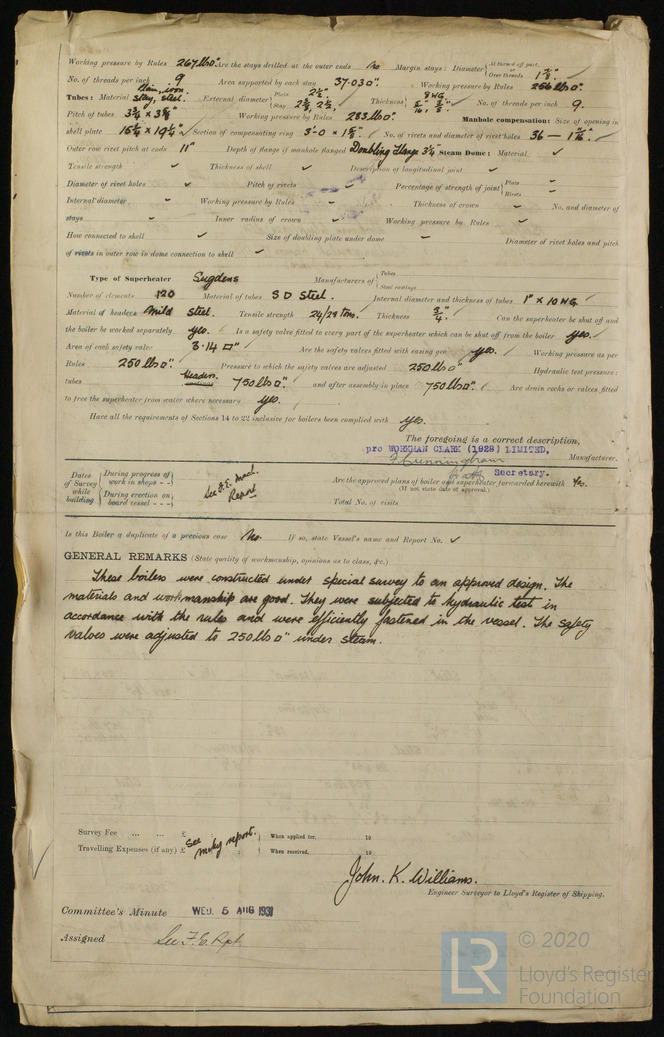 Working pressure by Rules 267 lbs □". Are the stays drilled at the outer ends No Margin stays: Diameter { At turned off part, or Over threads 1 7/8".
No. of threads per inch 9 Area supported by each stay 37.03 □". Working pressure by Rules 256 lbs □.
Tubes: Material Plain, iron. Stay, steel. External diameter { Plain 2½" Stay Thickness { 8 WG No. of threads per inch 9.
Pitch of tubes Working pressure by Rules 283 lbs □". Manhole compensation: Size of opening in
shell plate Section of compensating ring No. of rivets and diameter of rivet holes 36 —
Outer row rivet pitch at ends 11" Depth of flange if manhole flanged Doubling Flange 3¼" Steam Dome: Material ✓
Tensile strength ✓ Thickness of shell ✓ Description of longitudinal joint ✓
Diameter of rivet holes ✓ Pitch of rivets ✓ Percentage of strength of joint { Plate Rivets
Internal diameter ✓ Working pressure by Rules ✓ Thickness of crown ✓ No. and diameter of
stays ✓ Inner radius of crown ✓ Working pressure by Rules ✓
How connected to shell ✓ Size of doubling plate under dome ✓ Diameter of rivet holes and pitch
of rivets in outer row in dome connection to shell ✓
Type of Superheater Sugdens Manufacturers of { Tubes Steel castings
Number of elements 120 Material of tubes S D Steel. Internal diameter and thickness of tubes 1" × 10 WG ✓
Material of headers Mild steel. Tensile strength 24/29 tons. Thickness ¾". Can the superheater be shut off and
the boiler be worked separately yes. Is a safety valve fitted to every part of the superheater which can be shut off from the boiler yes.
Area of each safety valve 3.14 □" Are the safety valves fitted with easing gear yes. Working pressure as per
Rules 250 lbs □". Pressure to which the safety valves are adjusted 250 lbs □" Hydraulic test pressure:
tubes Headers. castings 750 lbs □". and after assembly in place 750 lbs □". Are drain cocks or valves fitted
to free the superheater from water where necessary yes.
Have all the requirements of Sections 14 to 22 inclusive for boilers been complied with yes.
The foregoing is a correct description,
pro WORKMAN CLARK (1928) LIMITED,
Cunningham Manufacturer.
Secretary.
Dates of Survey while building { During progress of work in shops - - During erection on board vessel - - - } See F.E. Mach. Report Are the approved plans of boiler and superheater forwarded herewith Yes.
(If not state date of approval.)
Total No. of visits
Is this Boiler a duplicate of a previous case No. If so, state Vessel's name and Report No. ✓
GENERAL REMARKS (State quality of workmanship, opinions as to class, &c.)
These boilers were constructed under special survey to an approved design. The
materials and workmanship are good. They were subjected to hydraulic test in
accordance with the rules and were efficiently fastened in the vessel. The safety
valves were adjusted to 250 lbs □" under steam.
Survey Fee ... ... £ When applied for, 19
Travelling Expenses (if any) £ See mchy report. When received, 19
John. K. Williams.
Engineer Surveyor to Lloyd's Register of Shipping.
Committee's Minute WED. 5 AUG 1931
Assigned See F.E. Rpt
LR © 2020
Lloyd's Register
Foundation